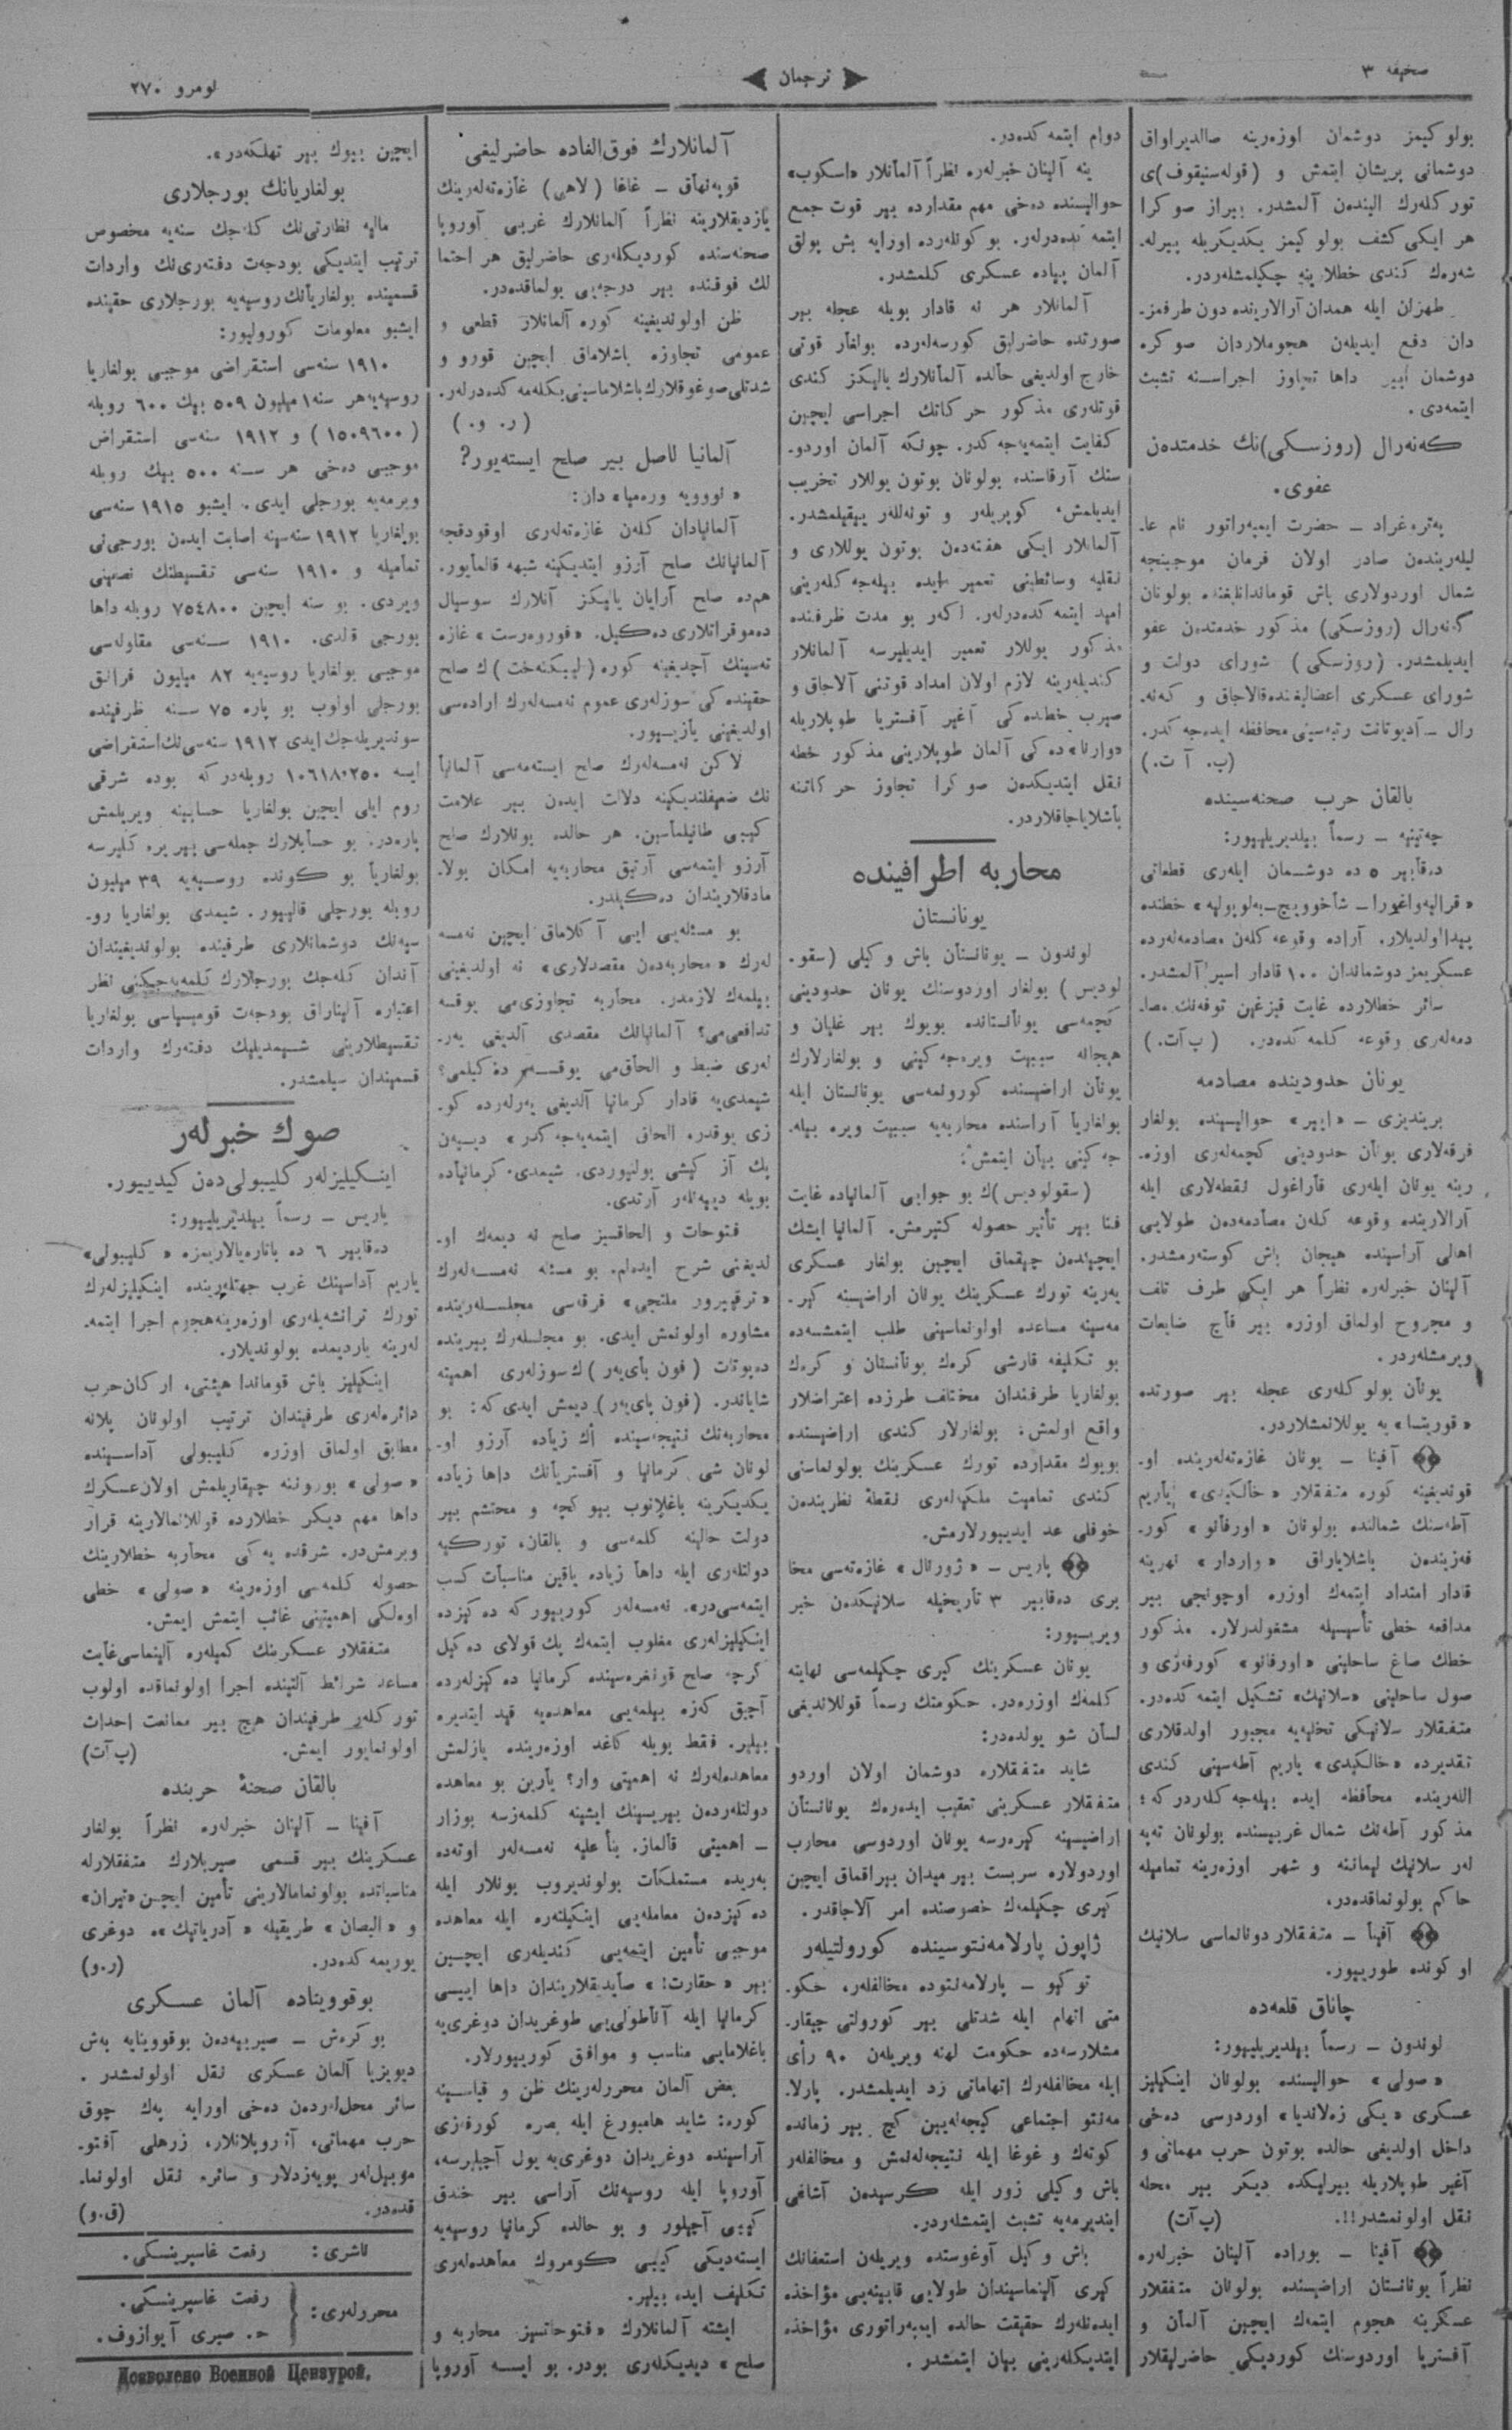 صحیفه ۳
ترجمان
نومرو ۲۷۰
بولو کیمز دوشمان اوزه‌رینه صالدیراراق
دوشمانی پریشان ایتمش و (قوله‌سنیقوف)ی
تورکلەرك الیندەن آلمشدر. بیراز صوکرا
هر ایکی کشف بولوکیمز یکدیکریله بیرله‌
شەرەك کندی خطلارینه چکیلمشلەردر.
طهران ایله همدان آرالارنده دون طرفمز
دان دفع ایدیلەن هجوملاردان صوکره
دوشمان داها تجاوز اجراسنه تشبث
ایتمەدی.
کەنەرال (روزسکی)نك خدمتدەن
عفوی.
پەتروغراد — حضرت ایمپەراتور نام عا
لیلەریندەن صادر اولان فرمان موجبنجه
شمال اوردولاری باش قوماندانلیغنده بولونان
گەنەرال (روزسکی) مذکور خدمتدەن عفو
ایدیلمشدر. (روزسکی) شورای دولت و
شورای عسکری اعضالیغنده‌قالاجاق و کەنه
رال — آدیوتانت رتبه‌سینی محافظه ایدەجەکدر.
(پ. آ ت.)
بالقان حرب صحنه‌سینده
چەتینیه — رسماً بیلدیریلییور:
دەقابیر ٥ ده دوشمان ایلەری قطعاتی
خطنده
پیدا اولدیلار. آراده وقوعه کلەن مصادمەلەرده
عسکریمز دوشماندان ۱۰۰ قادار اسیر آلمشدر.
سائر خطلارده غایت قیزغین توفەنك مصا
دمەلەری وقوعه کلمەکدەدر. (پ آت.)
یونان حدودینده مصادمه
بریندیزی — «ایپر» حوالیسینده بولغار
فرقەلاری یونان حدودینی کچمەلەری اوزە
رینه یونان ایلەری قاراغول نقطەلاری ایله
آرالارینده وقوعه کلەن مصادمەدەن طولایی
اهالی آراسینده هیجان باش کوستەرمشدر.
آلینان خبرلەره نظراً هر ایکی طرف تلف
و مجروح اولماق اوزره بیر قاچ ضایعات
ویرمشلەردر.
یونان بولوکلەری عجله بیر صورتده
«قوریتسا» یه یوللانمشلاردر.
آفینا — یونان غازەتەلەرینده او
قوندیغینه کوره متفقلار «خالکیدی» یاریم
آطەسنك شمالنده بولونان «اورفانو» کور
فەزیندەن باشلایاراق «واردار» نهرینه
قادار امتداد ایتمەك اوزره اوچونجی بیر
مدافعه خطی تأسیسیله مشغولدرلار. مذکور
خطك صاغ ساحلینی «اورفانو» کورفەزی و
صول ساحلینی «سلانیك» تشکیل ایتمەکدەدر.
متفقلار سلانیکی تخلیەیه مجبور اولدقلاری
تقدیرده «خالکیدی» یاریم آطەسینی کندی
اللەرینده محافظه ایده بیلەجەکلەردر که؛
مذکور آطەنك شمال غربیسنده بولونان تەپه
لەر سلانیك لیمانه و شهر اوزەرینه تمامیله
حاکم بولونماقدەدر.
آفینا — متفقلار دونانماسی سلانیك
اوکونده طورییور.
چاناق قلعەده
لوندون — رسماً بیلدیریلییور:
«صولی» حوالیسنده بولونان اینکیلیز
عسکری «یکی زەلاندیا» اوردوسی دەخی
داخل اولدیغی حالده بوتون حرب مهماتی و
آغیر طوپلاریله بیرلیکده دیکر بیر محله
نقل اولونمشدر!!. (پ آت)
آفینا — بوراده آلینان خبرلەره
نظراً یونانستان اراضیسنده بولونان متفقلار
عسکرینه هجوم ایتمەك ایچین آلمان و
آفستریا اوردوسنك کوردیکی حاضرلیقلار
دوام ایتمەکدەدر.
ینه آلینان خبرلەره نظراً آلمانلار «اسکوب»
حوالیسنده دەخی مهم مقدارده بیر قوت جمع
ایتمەکدەدرلەر. بو کونلەرده اورایه بش پولق
آلمان پیاده عسکری کلمشدر.
آلمانلار هر نه قادار بویله عجله بیر
صورتده حاضرلیق کورسەلەرده بولغار قوتی
خارج اولدیغی حالده آلمانلارك یالیکز کندی
قوتلەری مذکور حرکاتك اجراسی ایچین
کفایت ایتمەیەجەکدر. چونکه آلمان اوردو
سنك آرقاسنده بولونان بوتون یوللار تخریب
ایدیلمش، کوپریلەر و تونەللەر ییقیلمشدر.
آلمانلار ایکی هفتەدەن بوتون یوللاری و
نقلیه وسائطینی تعمیر ایده بیلەجەکلەرینی
امید ایتمەکدەدرلەر. اکەر بو مدت ظرفنده
مذکور یوللار تعمیر ایدیلیرسه آلمانلار
کندیلەرینه لازم اولان امداد قوتنی آلاجاق و
صیرب خطده‌کی آغیر آفستریا طوپلاریله
«وارنا» ده‌کی آلمان طوپلارینی مذکور خطه
نقل ایتدیکدەن صوکرا تجاوز حرکاتنه
باشلایاجاقلاردر.
محاربه اطرافینده
یونانستان
لوندون — یونانستان باش وکیلی (سقو
لودیس) بولغار اوردوسنك یونان حدودینی
کچمەسی یونانستانده بویوك بیر غلیان و
هیجانه سببیت ویرەجەکینی و بولغارلارك
یونان اراضیسنده کورونمەسی یونانستان ایله
بولغاریا آراسنده محاربەیه سببیت ویره بیله
جەکینی بیان ایتمش.
(سقولودیس)ك بو جوابی آلمانیاده غایت
فنا بیر تأثیر حصوله کتیرمش. آلمانیا ایشك
ایچیندەن چیقماق ایچین بولغار عسکری
یەرینه تورك عسکرینك یونان اراضیسنه کیر
مەسینه مساعده اولونماسینی طلب ایتمشسەده
بو تکلیفه قارشی کرەك یونانستان و کرەك
بولغاریا طرفندان مختلف طرزده اعتراضلار
واقع اولمش: بولغارلار کندی اراضیسنده
بویوك مقدارده تورك عسکرینك بولونماسنی
کندی تمامیت ملکیەلەری نقطۀ نظریندەن
خوفلی عد ایدییورلارمش.
پاریس — «ژورنال» غازەتەسی مخا
بری دەقابیر ۳ تأریخیله سلانیکدەن خبر
ویرییور:
یونان عسکرینك کیری چکیلمەسی نهایته
کلمەك اوزرەدر. حکومتك رسماً قوللاندیغی
لسان شو یولدەدر:
شاید متفقلاره دوشمان اولان اوردو
متفقلار عسکرینی تعقیب ایدەرەك یونانستان
اراضیسینه کیرەرسه یونان اوردوسی محارب
اوردولاره سربست بیر میدان بیراقماق ایچین
کیری چکیلمەك خصوصنده امر آلاجاقدر.
ژاپون پارلامەنتوسینده کورولتیلەر
توکیو — پارلامەنتوده مخالفلەر، حکو
متی اتهام ایله شدتلی بیر کورولتی چیقار
مشلارسەده حکومت لهنه ویریلەن ۹۰ رأی
ایله مخالفلەرك اتهاماتی رد ایدیلمشدر. پارلا
مەنتو اجتماعی کیجەلەیین کچ بیر زمانده
کوتەك و غوغا ایله نتیجەلەنمش و مخالفلەر
باش وکیلی زور ایله کرسیدەن آشاغی
ایندیرمەیه تشبث ایتمشلەردر.
باش وکیل آوغوستده ویریلەن استعفانك
کیری آلینماسیندان طولایی قابینەیی مؤاخذه
ایدەنلەرك حقیقت حالده ایمپەراتوری مؤاخذه
ایتدیکلەرینی بیان ایتمشدر.
آلمانلارك فوق‌العاده حاضرلیغی
قوپەنهاق — غاغا (لاهی) غازەتەلەرینك
یازدیقلارینه نظراً آلمانلارك غربی آوروپا
صحنەسنده کوردیکلەری حاضرلیق هر احتما
لك فوقنده بیر درجەیی بولماقدەدر.
ظن اولوندیغینه کوره آلمانلار قطعی و
عمومی تجاوزه باشلاماق ایچین قورو و
شدتلی صوغوقلارك باشلاماسینی بکلەمەکدەدرلەر.
(ر. و.)
آلمانیا ناصل بیر صلح ایستەیور؟
«نوویه ورەمیا» دان:
آلمانیادان کلەن غازەتەلەری اوقودقجه
آلمانیانك صلح آرزو ایتدیکینه شبهه قالمایور.
همده صلح آرایان یالیکز آنلارك سوسیال
دەموقراتلاری دەکیل. «فوروەرست» غازە
تەسینك آچدیغینه کوره (لیبکنەخت)ك صلح
حقینده‌کی سوزلەری عموم نەمسەلەرك ارادەسی
اولدیغینی یازییور.
لاکن نەمسەلەرك صلح ایستەمەسی آلمانیا
نك ضعیفلندیکینه دلالت ایدەن بیر علامت
کیبی طانیلماسین. هر حالده بونلارك صلح
آرزو ایتمەسی آرتیق محاربەیه امکان بولا
مادقلاریندان دەکیلدر.
بو مسئلەیی ایی آکلاماق ایچین نەمسه
لەرك «محاربەدەن مقصدلاری» نه اولدیغینی
بیلمەك لازمدر. محاربه تجاوزی‌می یوقسه
تدافعی‌می؟ آلمانیانك مقصدی آلدیغی یەر
لەری ضبط و الحاق‌می یوقسه دەکیلمی؟
شیمدی‌یه قادار کرمانیا آلدیغی یەرلەرده کو
زی یوقدر. الحاق ایتمەیەجەکدر» دییەن
پك آز کیشی بولنیوردی. شیمدی کرمانیاده
بویله دییەنلەر آرتدی.
فتوحات و الحاقسیز صلح نه دیمەك او
لدیغنی شرح ایدەلم. بو مسئله نەمسەلەرك
«ترقیپرور ملتجی» فرقەسی مجلسلەرینده
مشاوره اولونمش ایدی. بو مجلسلەرك بیرینده
دەپوتات (فون پای‌یەر)ك سوزلەری اهمیته
شایاندر. (فون پای‌یەر) دیمش ایدی که: بو
محاربەنك نتیجەسینده أك زیاده آرزو او
لونان شی کرمانیا و آفستریانك داها زیاده
یکدیکرینه باغلانوب بیوكچه و محتشم بیر
دولت حالینه کلمەسی و بالقان، تورکیه
دولتلەری ایله داها زیاده یاقین مناسبات کسب
ایتمەسی‌در». نەمسەلەر کورییور که دەکیزده
اینکیلیزلەری مغلوب ایتمەك پك قولای دەکیل
کرچه صلح قونغرەسینده کرمانیا دەکیزلەرده
آچیق کەزه بیلمەیی معاهدەیه قید ایتدیره
بیلیر. فقط بویله کاغد اوزەرینده یازلمش
معاهدەلەرك نه اهمیتی وار؟ یارین بو معاهده
دولتلەردەن بیریسینك ایشینه کلمەزسه بوزار
— اهمیتی قالماز. بناً علیه نەمسەلەر اوتەده
بەریده مستملکات بولوندیروب بونلار ایله
دەکیزدەن معاملەیی اینکیلتەره ایله معاهده
موجبی تأمین ایتمەیی کندیلەری ایچین
بیر «حقارت!» صایدیقلاریندان داها ایییسی
کرمانیا ایله آناطولی‌یی طوغریدان دوغری‌یه
باغلامایی مناسب و موافق کورییورلار.
بعض آلمان محررلەرینك ظن و قیاسینه
کوره: شاید هامبورغ ایله بصره کورفەزی
آراسینده دوغریدان دوغری‌یه یول آچیلیرسه،
آوروپا ایله روسیەنك آراسی بیر خندق
کیبی آچیلور و بو حالده کرمانیا روسیەیه
ایستەدیکی کیبی کومروك معاهدەلەری
تکلیف ایده بیلیر.
ایشته آلمانلارك «فتوحاتسیز محاربه و
صلح» دیدیکلەری بودر. بو ایسه آوروپا
ایچین بیوك بیر تهلکەدر».
بولغاریانك بورجلاری
مالیه نظارتی‌نك کلەجك سنەیه مخصوص
ترتیب ایتدیکی بودجەت دفتەری‌نك واردات
قسمینده بولغاریانك روسیەیه بورجلاری حقینده
ایشبو معلومات کورولیور:
۱۹۱۰ سنەسی استقراضی موجبی بولغاریا
روسیەیه هر سنه ۱ میلیون ۵۰۹ بیك ۶۰۰ روبله
(۱۵۰۹۶۰۰) و ۱۹۱۲ سنەسی استقراض
موجبی دەخی هر سنه ۵۰۰ بیك روبله
ویرمەیه بورجلی ایدی. ایشبو ۱۹۱۵ سنەسی
بولغاریا ۱۹۱۲ سنەسینه اصابت ایدەن بورجی‌نی
تمامیله و ۱۹۱۰ سنەسی تقسیطنك نصفینی
ویردی. بو سنه ایچین ۷۵۴۸۰۰ روبله داها
بورجی قالدی. ۱۹۱۰ سنەسی مقاولەسی
موجبی بولغاریا روسیەیه ۸۲ میلیون فرانق
بورجلی اولوب بو پاره ۷۵ سنه ظرفینده
سوندیریلەجك ایدی ۱۹۱۲ سنەسی‌نك استقراضی
ایسه ۱۰۶۱۸۰۲۵۰ روبلەدر که بوده شرقی
روم ایلی ایچین بولغاریا حسابینه ویریلمش
پارەدر. بو حسابلارك جملەسی بیر یره کلیرسه
بولغاریا بو کونده روسیەیه ۳۹ میلیون
روبله بورچلی قالییور. شیمدی بولغاریا رو
سیەنك دوشمانلاری طرفینده بولوندیغیندان
آندان کلەجك بورجلارك کلمەیەجیکنی نظر
اعتباره آلیناراق بودجەت قومیسیاسی بولغاریا
تقسیطلارینی شیمدیلیك دفتەرك واردات
قسمیندان سیلمشدر.
صوك خبرلەر
اینکیلیزلەر کلیبولی‌دەن کیدییور.
پاریس — رسماً بیلدیریلییور:
دەقابیر ٦ ده باتارەیالاریمزه «کلیبولی»
یاریم آداسینك غرب جهتلەرینده اینکیلیزلەرك
تورك ترانشەیلەری اوزەرینه هجوم اجرا ایتمه
لەرینه یاردیمده بولوندیلار.
اینکیلیز باش قوماندا هیئتی، ارکان حرب
دائرەلەری طرفیندان ترتیب اولونان پلانه
مطابق اولماق اوزره کلیبولی آداسینده
«صولی» بورونینه چیقاریلمش اولان عسکرك
داها مهم دیکر خطلارده قوللانمالارینه قرار
ویرمش‌در. شرقده‌یه‌کی محاربه خطلارینك
حصوله کلمەسی اوزەرینه «صولی» خطی
اوەلکی اهمیتینی غائب ایتمش ایمش.
متفقلار عسکرینك کمیلەره آلینماسی غایت
مساعد شرائط آلتینده اجرا اولونماقده اولوب
تورکلەر طرفیندان هیچ بیر ممانعت احداث
اولونمایور ایمش. (پ آت)
بالقان صحنۀ حربنده
آفینا — آلینان خبرلەره نظراً بولغار
عسکرینك بیر قسمی صیربلارك متفقلارله
مناسباتده بولونمامالارینی تأمین ایچین «تیران»
و «البصان» طریقیله «آدریاتیك»ه دوغری
یوریمەکدەدر. (ر.و)
بوقوویناده آلمان عسکری
بوکرەش — صیربیەدەن بوقووینایه بەش
دیویزیا آلمان عسکری نقل اولونمشدر.
سائر محل‌لەردەن دەخی اورایه پەك چوق
حرب مهماتی، آئروپلانلار، زرهلی آفتو
موبیل‌لەر پویەزدلار و سائره نقل اولونما
قدەدر. (ق.و)
ناشری: رفعت غاسپرینسکی.
محررلەری: رفعت غاسپرینسکی.
ح. صبری آیوازوف.
Дозволено Военной Цензурой.